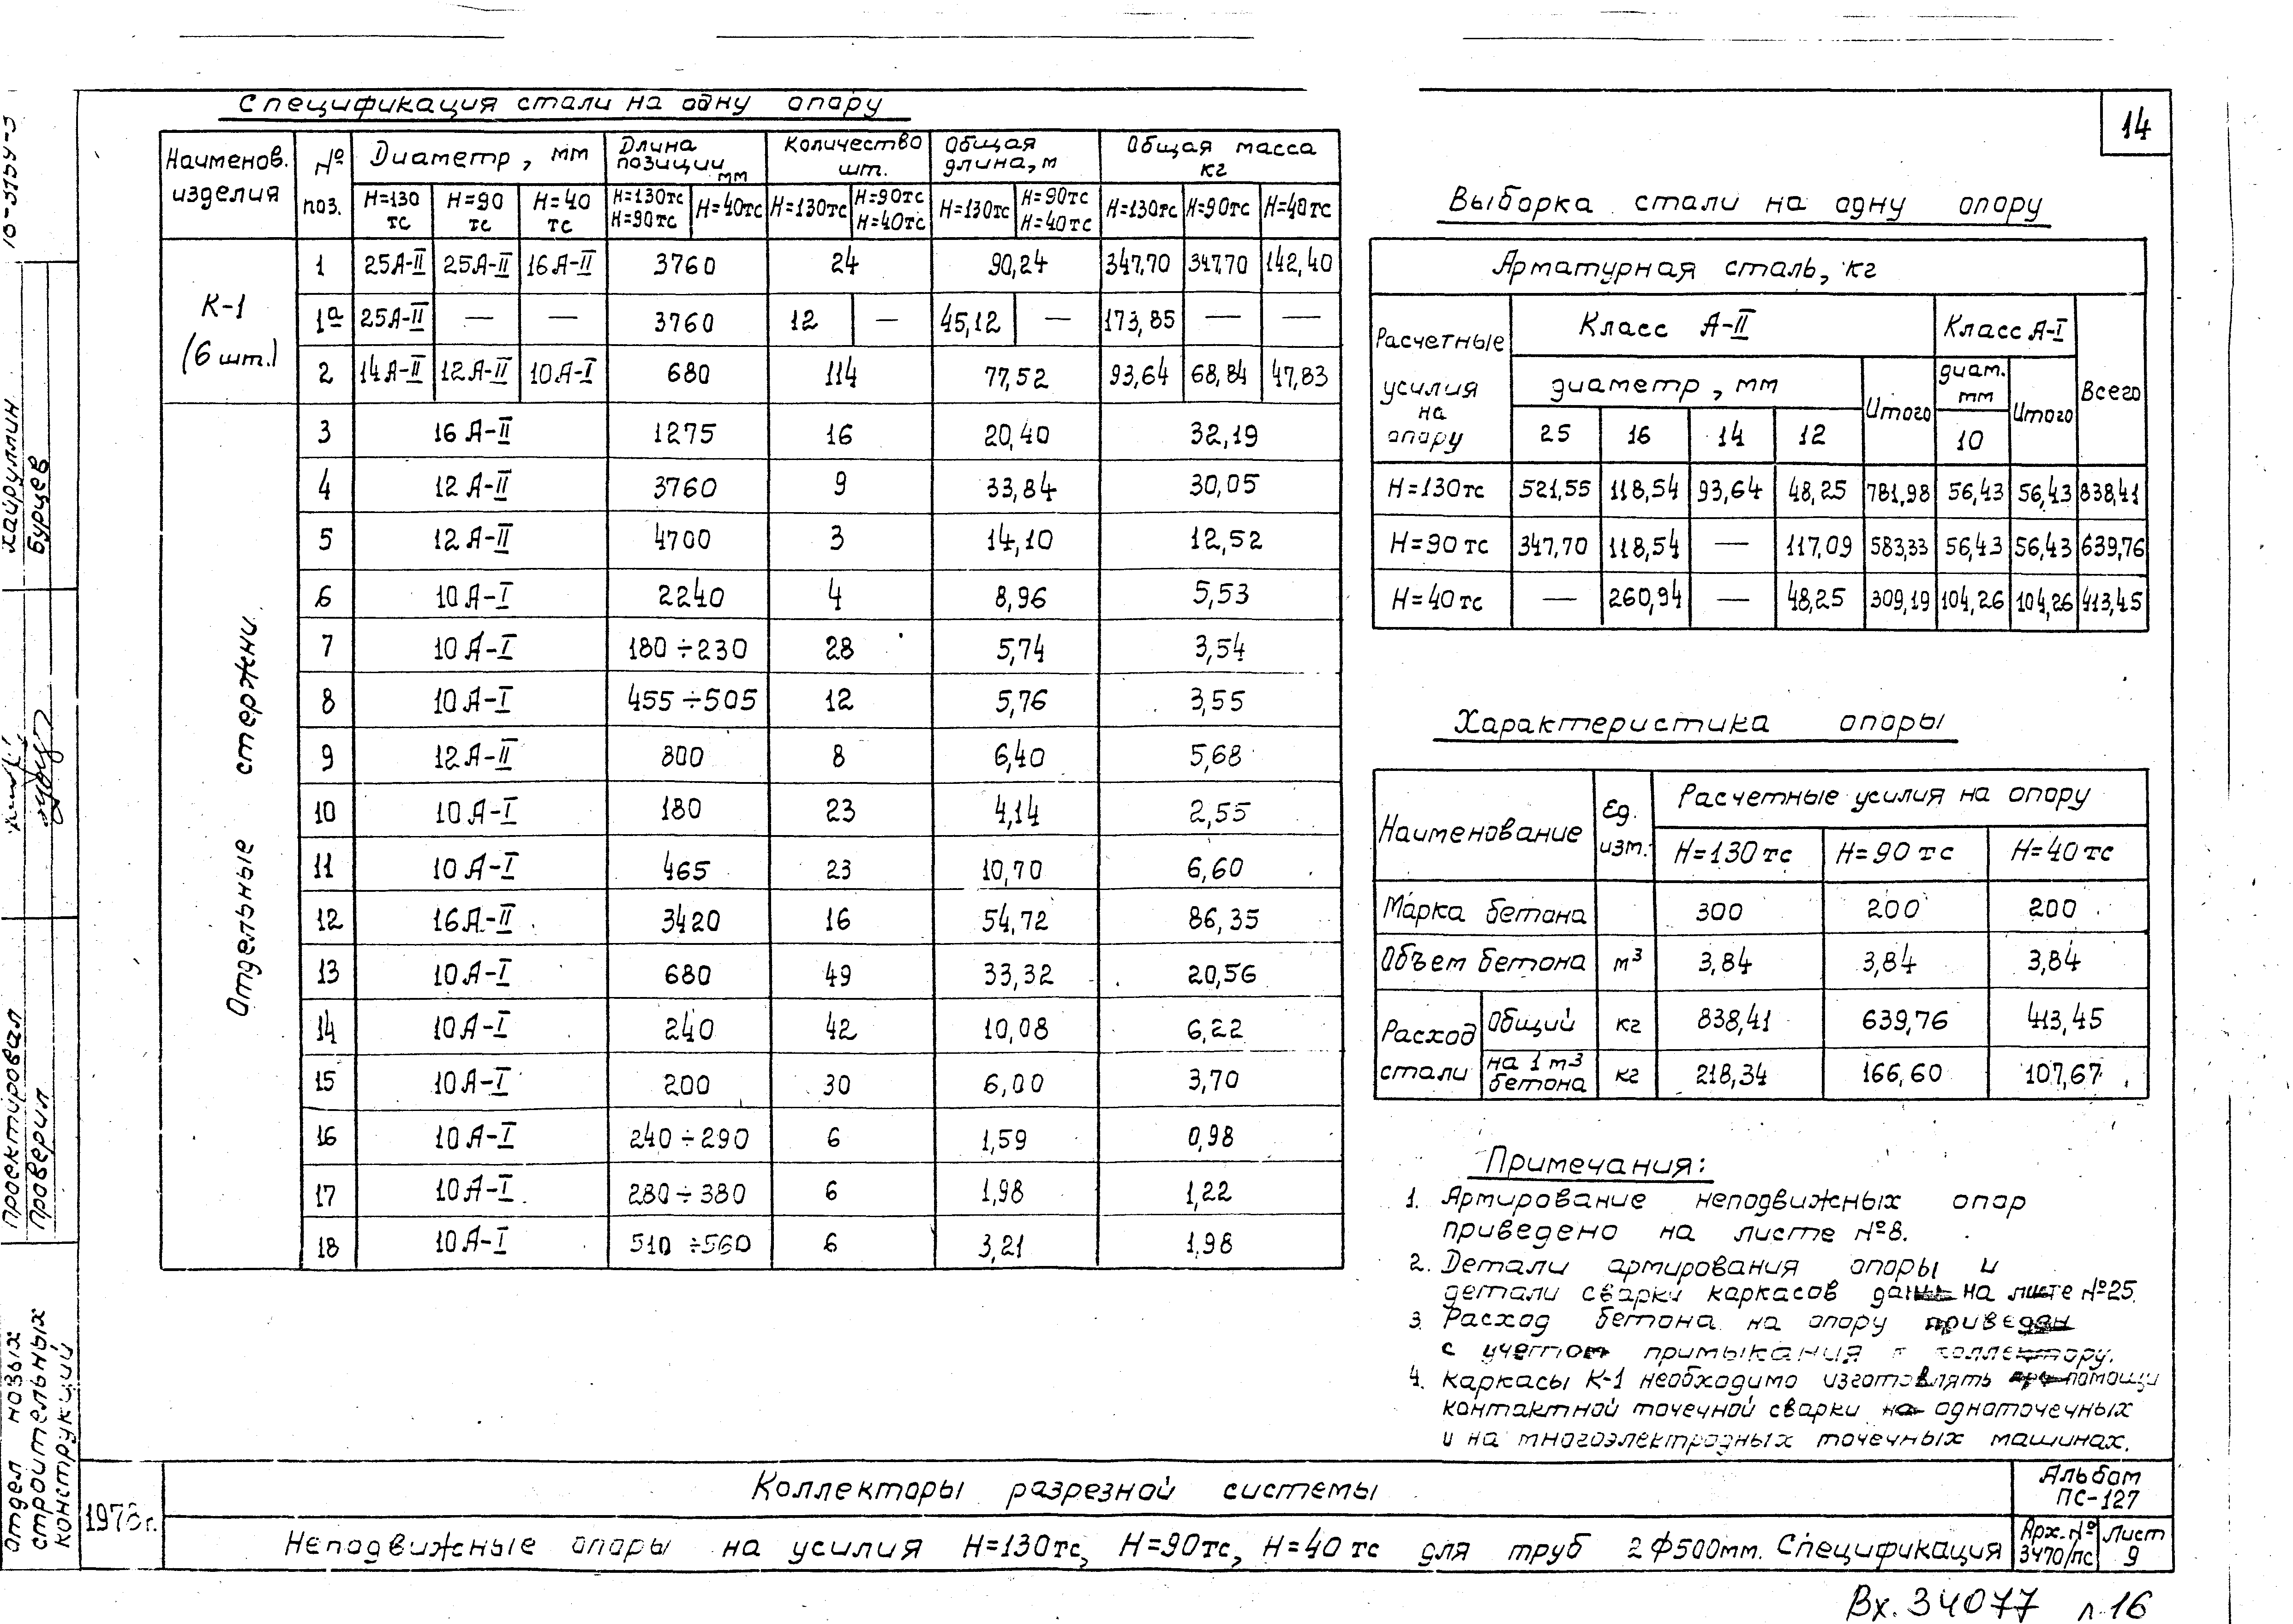 14
Спецификация стали на одну опору
Наименов. изделия | № поз. | Диаметр, мм | Длина позиции мм | Количество шт. | Общая длина, м | Общая масса кг
H=130 тс | H=90 тс | H=40 тс | H=130тс H=90тс | H=40тс | H=130тс | H=90тс H=40тс | H=130тс | H=90тс H=40тс | H=130тс | H=90тс | H=40тс
К-1 (6 шт.)
1 | 25А-II | 25А-II | 16А-II | 3760 | 24 | 90,24 | 347,70 | 347,70 | 142,40
1а | 25А-II | — | — | 3760 | 12 | — | 45,12 | — | 173,85 | — | —
2 | 14А-II | 12А-II | 10А-I | 680 | 114 | 77,52 | 93,64 | 68,84 | 47,83
Отдельные стержни.
3 | 16А-II | 1275 | 16 | 20,40 | 32,19
4 | 12А-II | 3760 | 9 | 33,84 | 30,05
5 | 12А-II | 4700 | 3 | 14,10 | 12,52
6 | 10А-I | 2240 | 4 | 8,96 | 5,53
7 | 10А-I | 180÷230 | 28 | 5,74 | 3,54
8 | 10А-I | 455÷505 | 12 | 5,76 | 3,55
9 | 12А-II | 800 | 8 | 6,40 | 5,68
10 | 10А-I | 180 | 23 | 4,14 | 2,55
11 | 10А-I | 465 | 23 | 10,70 | 6,60
12 | 16А-II | 3420 | 16 | 54,72 | 86,35
13 | 10А-I | 680 | 49 | 33,32 | 20,56
14 | 10А-I | 240 | 42 | 10,08 | 6,22
15 | 10А-I | 200 | 30 | 6,00 | 3,70
16 | 10А-I | 240÷290 | 6 | 1,59 | 0,98
17 | 10А-I | 280÷380 | 6 | 1,98 | 1,22
18 | 10А-I | 510÷560 | 6 | 3,21 | 1,98
Выборка стали на одну опору
Арматурная сталь, кг
Расчетные усилия на опору | Класс А-II | Класс А-I | Всего
диаметр, мм | Итого | диам. мм | Итого
25 | 16 | 14 | 12 | 10
H=130тс | 521,55 | 118,54 | 93,64 | 48,25 | 781,98 | 56,43 | 56,43 | 838,41
H=90тс | 347,70 | 118,54 | — | 117,09 | 583,33 | 56,43 | 56,43 | 639,76
H=40тс | — | 260,94 | — | 48,25 | 309,19 | 104,26 | 104,26 | 413,45
Характеристика опоры
Наименование | Ед. изм. | Расчетные усилия на опору
H=130тс | H=90тс | H=40тс
Марка бетона | 300 | 200 | 200
Объем бетона | м³ | 3,84 | 3,84 | 3,84
Расход стали | Общий | кг | 838,41 | 639,76 | 413,45
на 1 м³ бетона | кг | 218,34 | 166,60 | 107,67
Примечания:
1. Армирование неподвижных опор
приведено на листе №8.
2. Детали армирования опоры и
детали сварки каркасов даны на листе №25.
3. Расход бетона на опору приведен
с учетом примыкания к коллектору.
4. Каркасы К-1 необходимо изготовлять при помощи
контактной точечной сварки на одноточечных
и на многоэлектродных точечных машинах.
1978г.
Коллекторы разрезной системы
Неподвижные опоры на усилия H=130тс, H=90тс, H=40тс для труб 2Ф500мм. Спецификация
Альбом ПС-127
Арх.№ 3470/ПС
Лист 9
Вх.34077 л.16
Хайруллин
Бурцев
Проектировал
Проверил
Отдел новых
строительных
конструкций